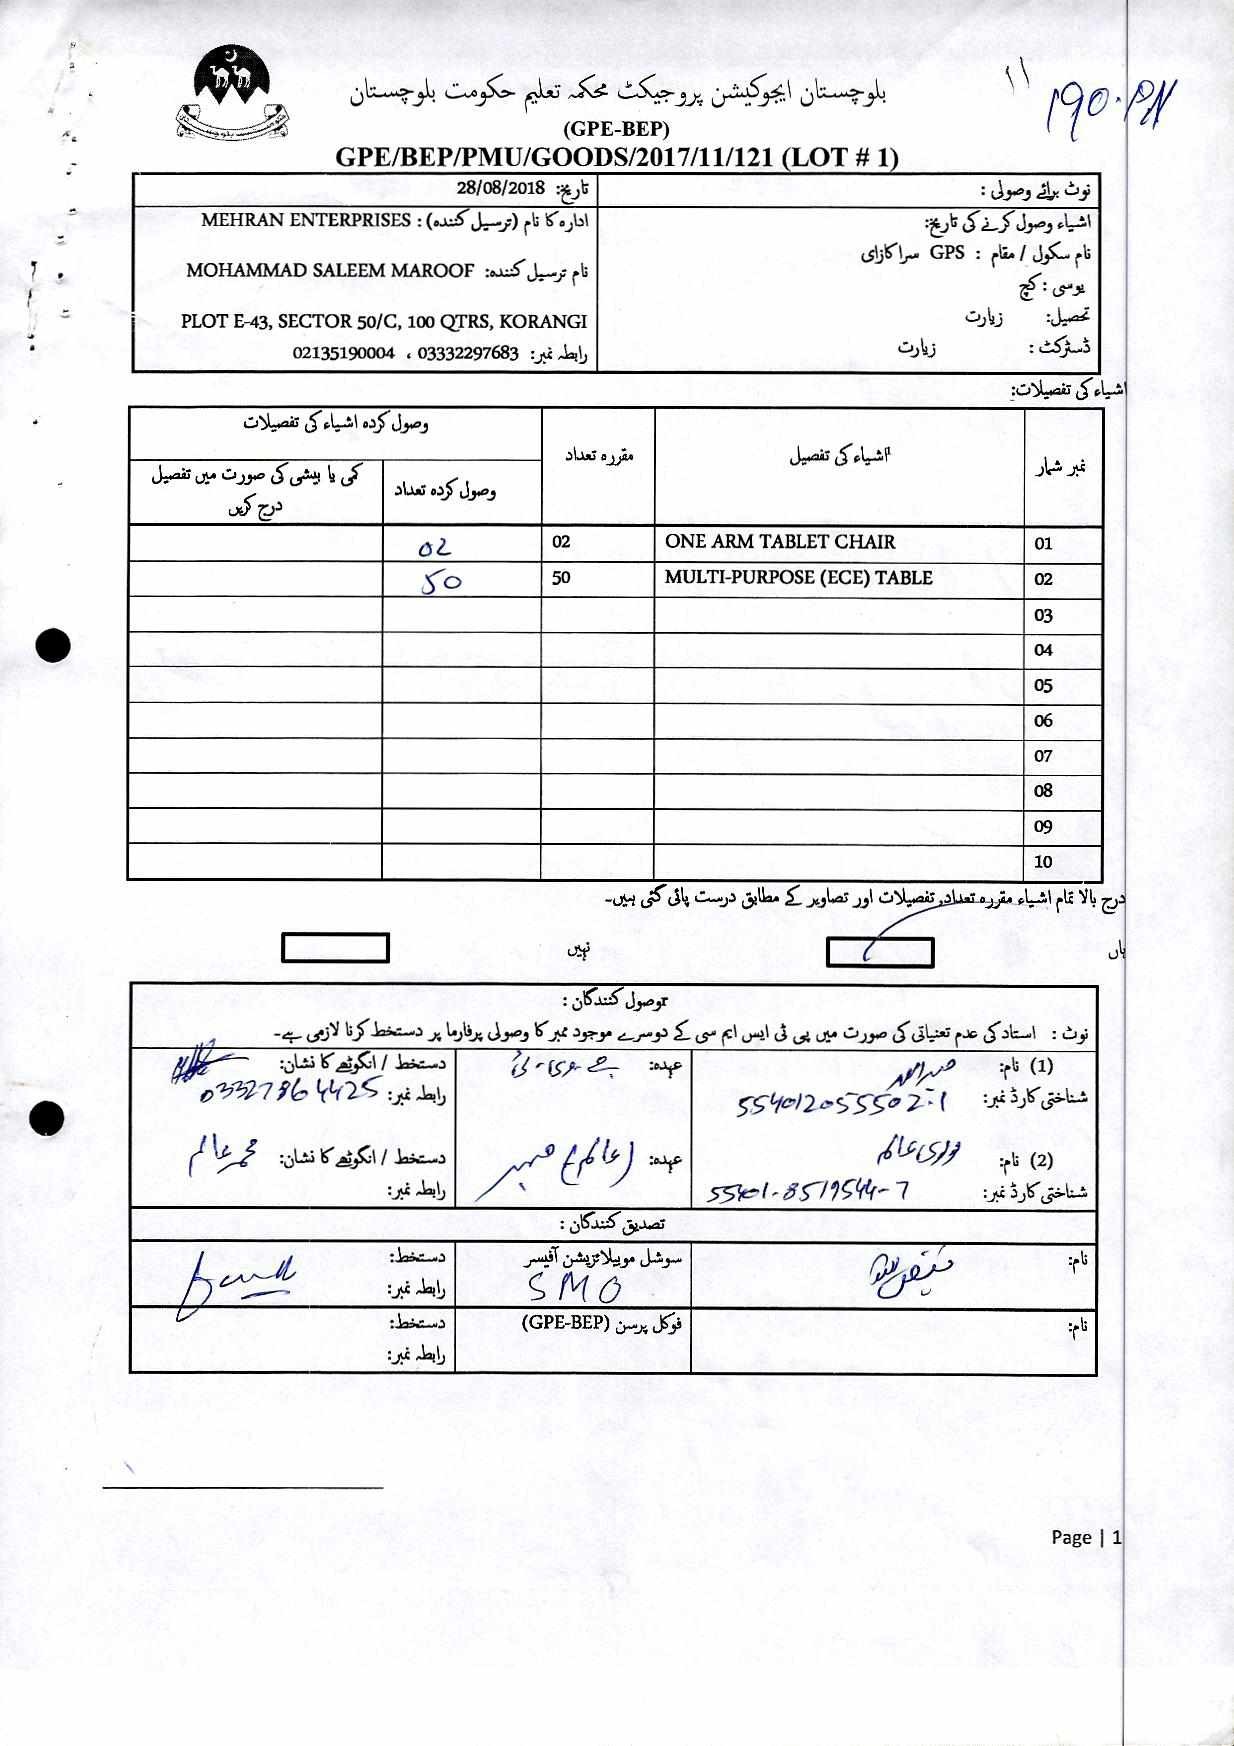 بلوچستان ایجوکیشن پروجیکٹ محکمہ تعلیم حکومت بلوچستان
(GPE-BEP)
GPE/BEP/PMU/GOODS/2017/11/121 (LOT # 1)
نوٹ برائے وصولی :
تاریخ: 28/08/2018
اشیاء وصول کرنے کی تاریخ:
نام سکول / مقام : GPS سراکازای
یوسی : کچ
تحصیل: زیارت
ڈسٹرکٹ : زیارت
ادارہ کا نام (ترسیل کنندہ) : MEHRAN ENTERPRISES
نام ترسیل کنندہ: MOHAMMAD SALEEM MAROOF
PLOT E-43, SECTOR 50/C, 100 QTRS, KORANGI
رابطہ نمبر: 03332297683 ، 02135190004
اشیاء کی تفصیلات:
نمبر شمار اشیاء کی تفصیل مقررہ تعداد وصول کردہ اشیاء کی تفصیلات
وصول کردہ تعداد کمی یا بیشی کی صورت میں تفصیل درج کریں
01 ONE ARM TABLET CHAIR 02 02
02 MULTI-PURPOSE (ECE) TABLE 50 50
03
04
05
06
07
08
09
10
درج بالا تمام اشیاء مقررہ تعداد، تفصیلات اور تصاویر کے مطابق درست پائی گئی ہیں۔
ہاں
نہیں
وصول کنندگان :
نوٹ : استاد کی عدم تعیناتی کی صورت میں پی ٹی ایس ایم سی کے دوسرے موجود ممبر کا وصولی پرفارما پر دستخط کرنا لازمی ہے۔
(1) نام:
عہدہ: جے-وی-ٹی
دستخط / انگوٹھے کا نشان:
شناختی کارڈ نمبر: 554012055502-1
رابطہ نمبر: 03327864425
(2) نام:
عہدہ: ممبر
دستخط / انگوٹھے کا نشان: محمد عالم
شناختی کارڈ نمبر: 55401-8519544-7
رابطہ نمبر:
تصدیق کنندگان :
نام:
سوشل موبیلائزیشن آفیسر
SMO
دستخط:
رابطہ نمبر:
نام:
فوکل پرسن (GPE-BEP)
دستخط:
رابطہ نمبر:
Page | 1